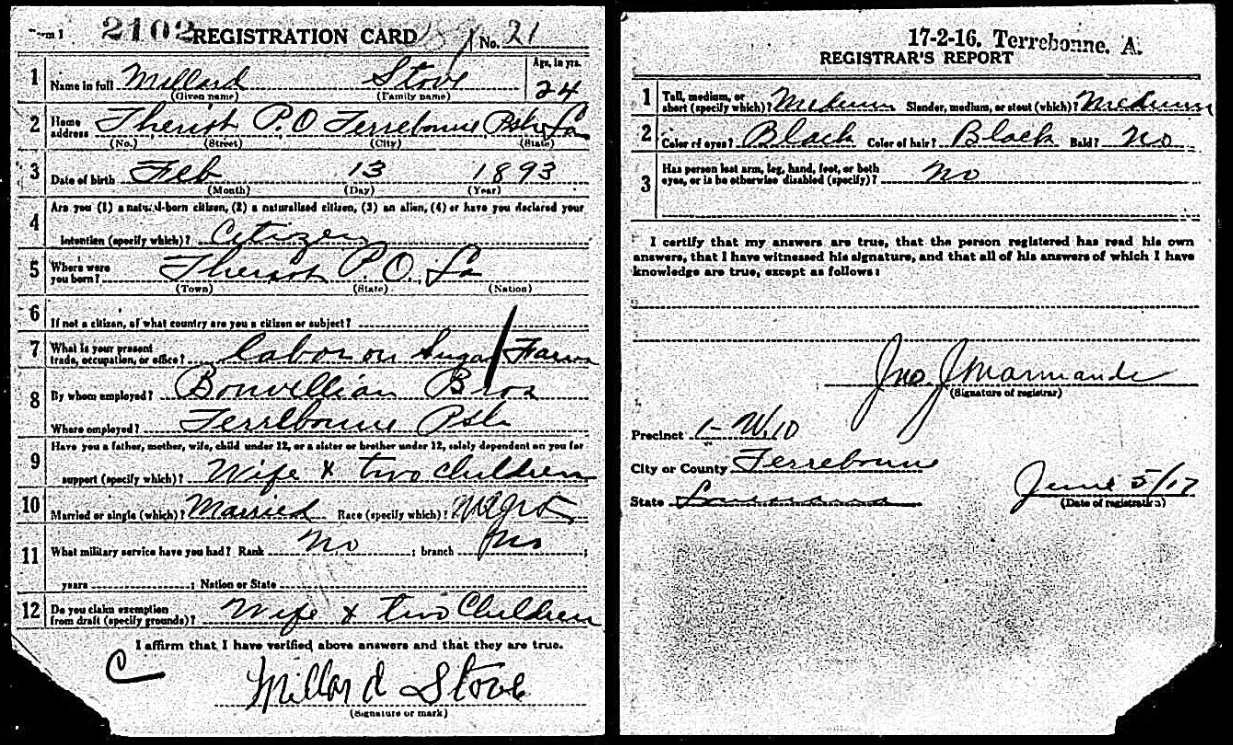 Form 1 2102 REGISTRATION CARD No. 21
1 Name in full Millard Stove Age, in yrs. 24
(Given name) (Family name)
2 Home address Theriot P.O Terrebonne Psh La
(No.) (Street) (City) (State)
3 Date of birth Feb 13 1893
(Month) (Day) (Year)
4 Are you (1) a natural-born citizen, (2) a naturalized citizen, (3) an alien, (4) or have you declared your
intention (specify which)? Citizen
5 Where were you born? Theriot P.O. La
(Town) (State) (Nation)
6 If not a citizen, of what country are you a citizen or subject?
7 What is your present trade, occupation, or office? Labor on Sugar Farm
8 By whom employed? Bonvillian Bros
Where employed? Terrebonne Psh
9 Have you a father, mother, wife, child under 12, or a sister or brother under 12, solely dependent on you for
support (specify which)? Wife & two children
10 Married or single (which)? Married Race (specify which)? Negro
11 What military service have you had? Rank No ; branch No ;
years ; Nation or State
12 Do you claim exemption from draft (specify grounds)? Wife & two Children
I affirm that I have verified above answers and that they are true.
C
Millard Stove
(Signature or mark)
17-2-16. Terrebonne. A.
REGISTRAR'S REPORT
1 Tall, medium, or short (specify which)? Medium Slender, medium, or stout (which)? Medium
2 Color of eyes? Black Color of hair? Black Bald? No
3 Has person lost arm, leg, hand, foot, or both
eyes, or is he otherwise disabled (specify)? No
I certify that my answers are true, that the person registered has read his own
answers, that I have witnessed his signature, and that all of his answers of which I have
knowledge are true, except as follows:
Jno. J Marmande
(Signature of registrar)
Precinct 1 - W.10
City or County Terrebonne
State Louisiana
June 5/17
(Date of registration)